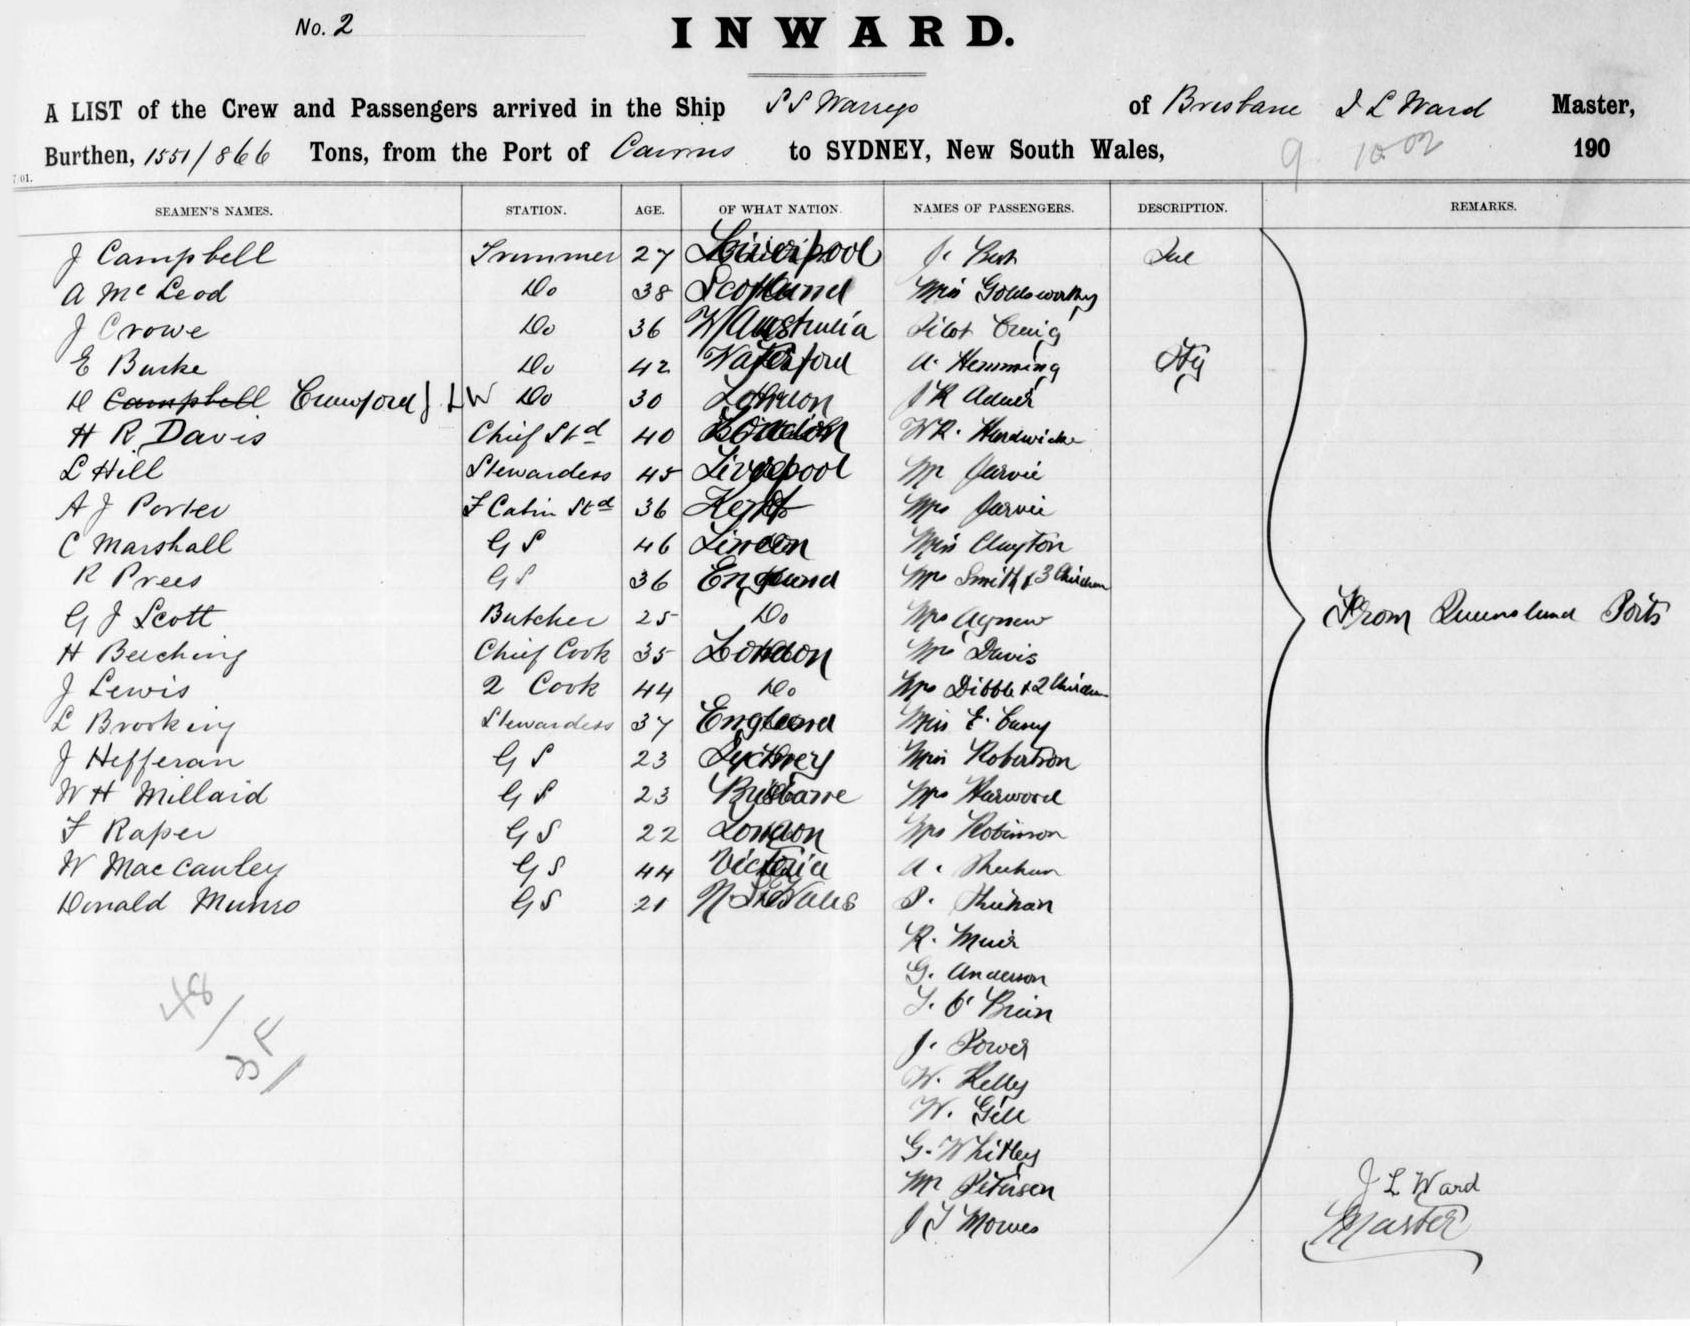 No. 2
INWARD.
A LIST of the Crew and Passengers arrived in the Ship S S Warrego of Brisbane J L Ward Master,
Burthen, 1551/866 Tons, from the Port of Cairns to SYDNEY, New South Wales, 9 10 02 190
7/01.
SEAMEN'S NAMES. STATION. AGE. OF WHAT NATION. NAMES OF PASSENGERS. DESCRIPTION. REMARKS.
J Campbell Trimmer 27 Liverpool J. Best
A McLeod Do 38 Scotland Miss Goldsworthy
J Crowe Do 36 W Australia Pilot Craig
E Burke Do 42 Waterford A. Hemming
D Campbell Crawford J L W Do 30 J R Adair
H R Davis Chief Std 40 London W R. Hardwicke
L Hill Stewardess 45 Liverpool Mr Jarvie
A J Porter F Cabin Std 36 Kent Mrs Jarvie
C Marshall G S 46 Lincoln Miss Clayton
R Prees G S 36 England Mrs Smith & 3 Children
G J Scott Butcher 25 Do Mrs Agnew
H Beeching Chief Cook 35 London Mrs Davis
J Lewis 2 Cook 44 Do Mrs Dibble & 2 Children
L Brooking Stewardess 37 England Miss E. Casey
J Hefferan G S 23 Sydney Miss Robertson
W H Millaid G S 23 Brisbane Mrs Harwood
F Raper G S 22 London Mrs Robinson
W MacCauley G S 44 Victoria A. Sheehan
Donald Munro G S 21 N S Wales P. Sheehan
R. Muir
G. Anderson
T. O'Brien
J. Power
W. Kelly
W. Gill
G. Whitley
Mr Petersen
J T Morves
From Queensland Ports
48/
J L Ward
Master